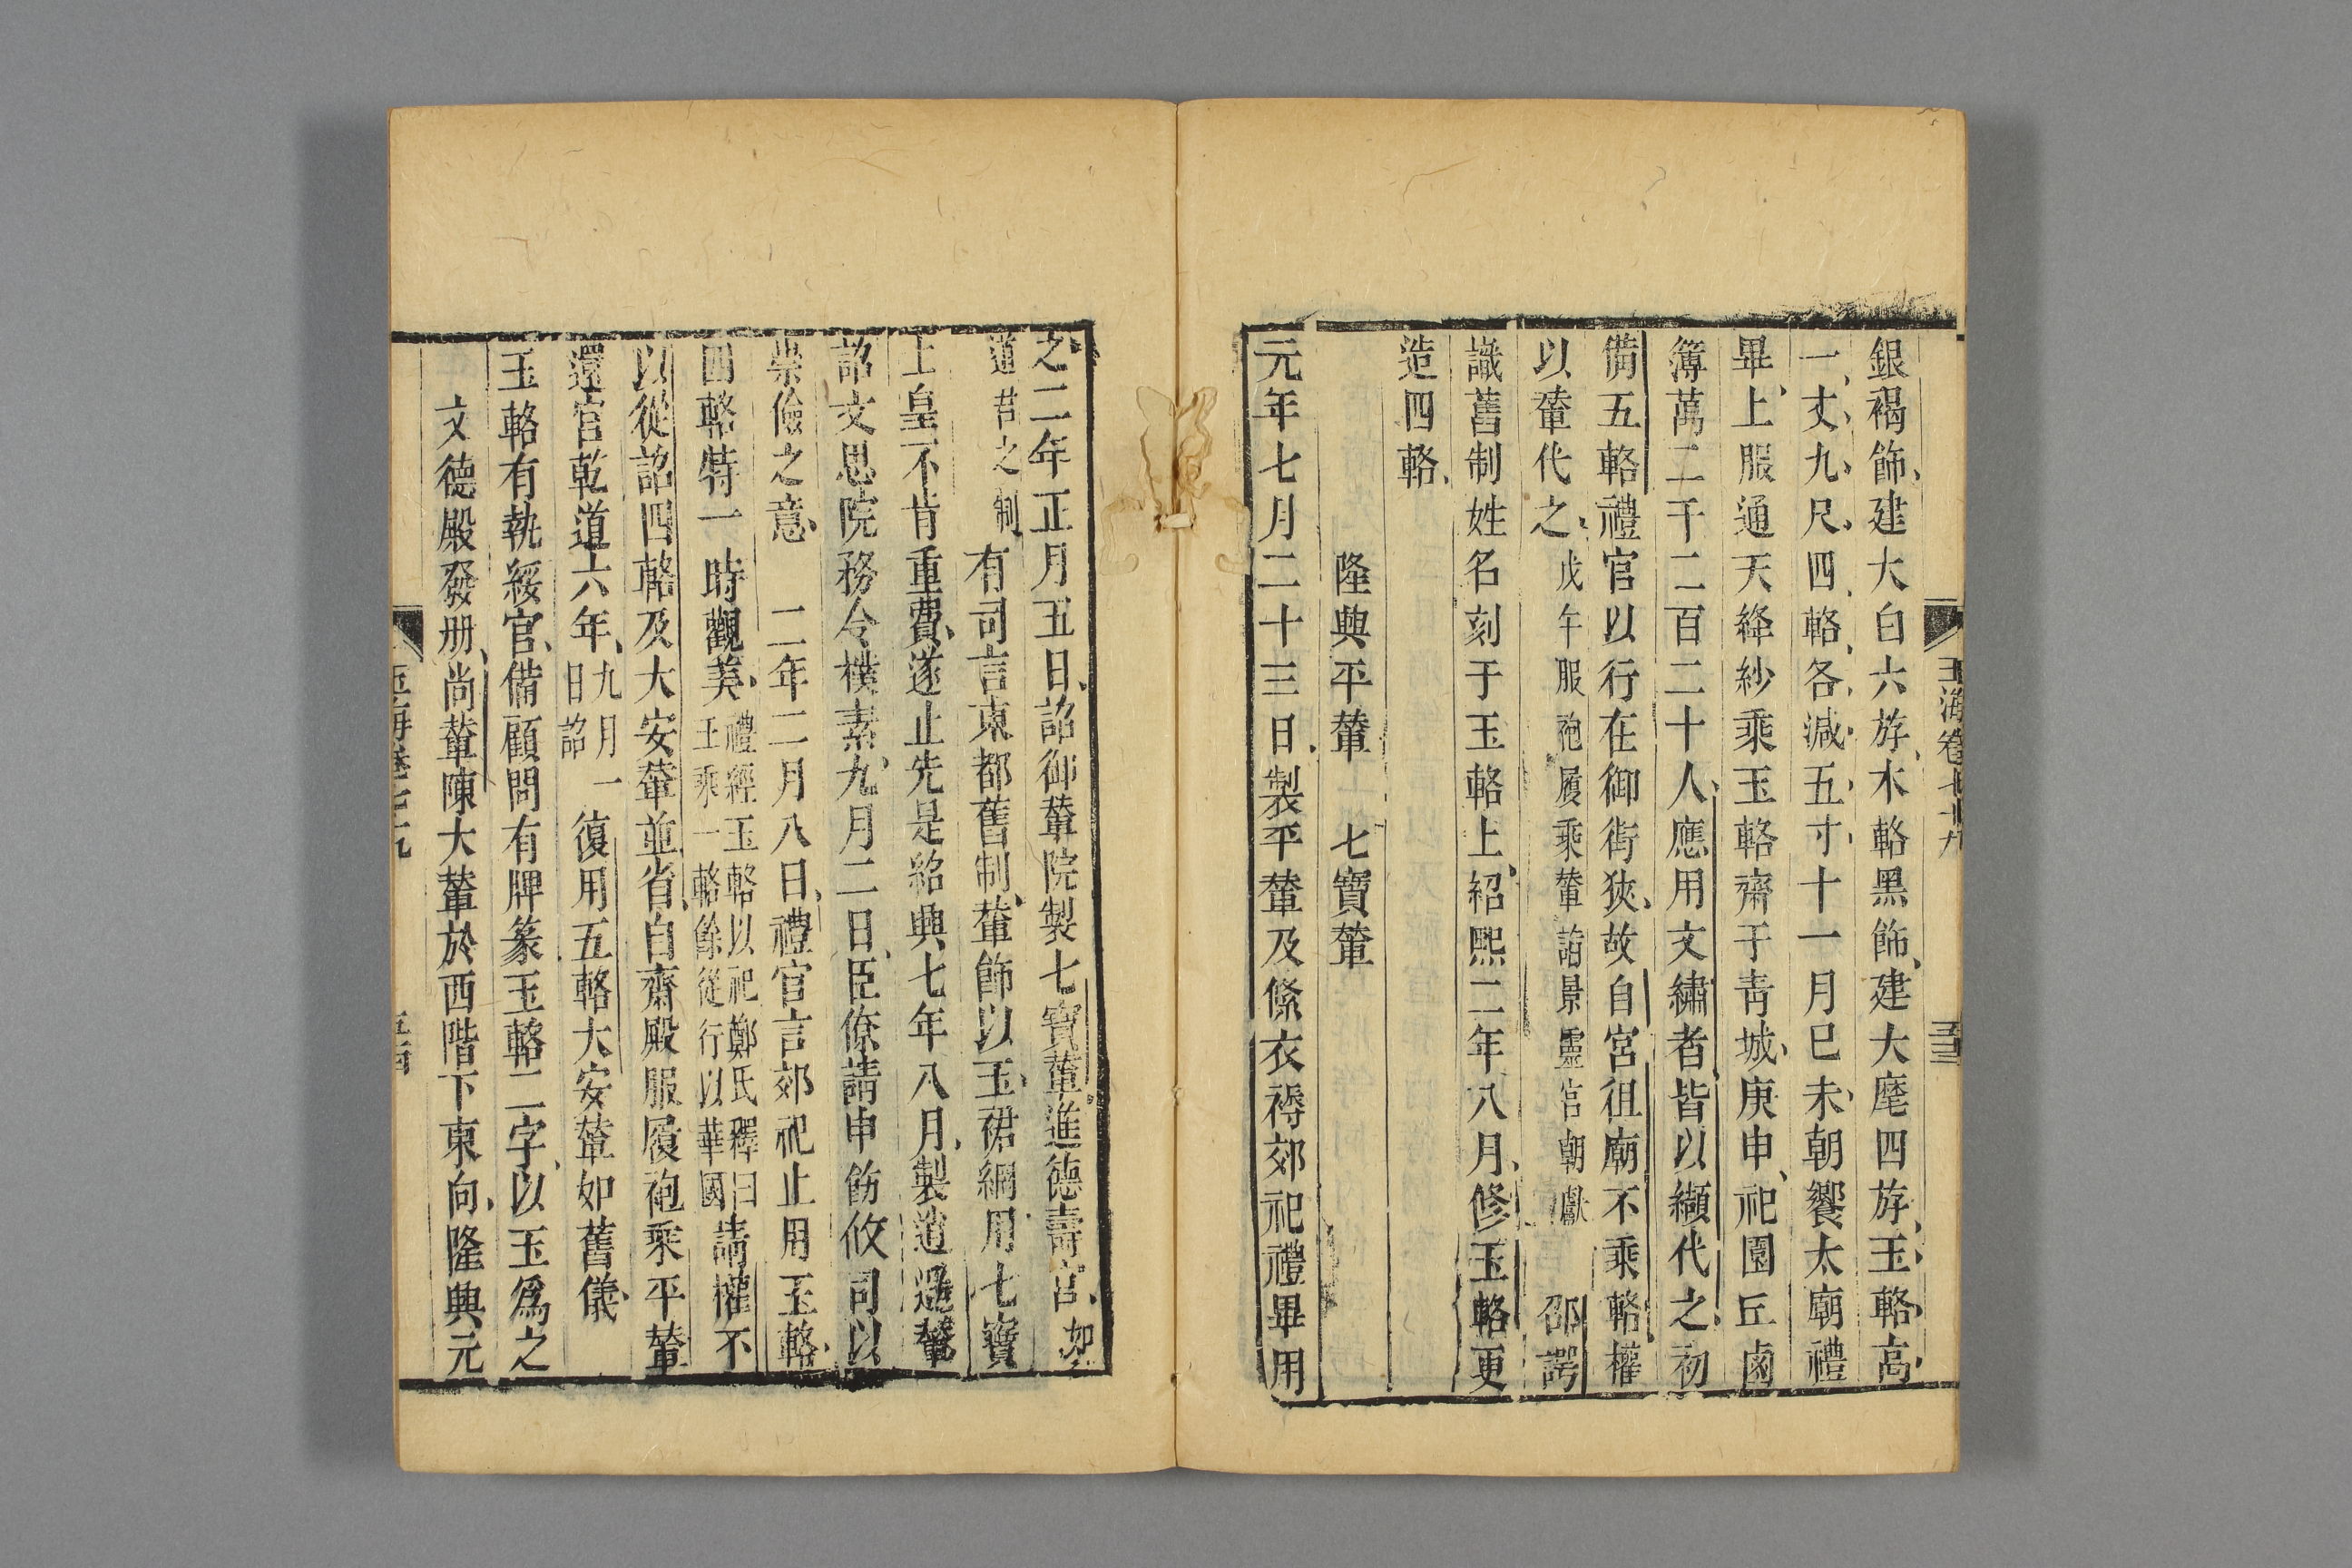 玉海卷七十九
銀褐飾建大白六斿木輅黑飾建大麾四斿玉輅高
一丈九尺四輅各減五寸十一月巳未朝饗太廟禮
畢上服通天絳紗乘玉輅齋于青城庚申祀圜丘鹵
簿萬二千二百二十人應用文繡者皆以纈代之初
備五輅禮官以行在御街狹故自宮徂廟不乘輅權
以輦代之戊午服袍履乘輦詣景靈宮朝獻邵諤
識舊制姓名刻于玉輅上紹熙二年八月修玉輅更
造四輅
隆興平輦 七寶輦
元年七月二十三日製平輦及絛衣褥郊祀禮畢用
之二年正月五日詔御輦院製七寶輦進德壽宮如
道君之制有司言東都舊制輦飾以玉裙網用七寶
上皇不肯重費遂止先是紹興七年八月製逍遥輦
詔文思院務令樸素九月二日臣僚請申飭攸司以
崇儉之意 二年二月八日禮官言郊祀止用玉輅
四輅特一時觀美禮經玉輅以祀鄭氏釋曰王乘一輅餘從行以華國請權不
以從詔四輅及大安輦並省自齋殿服履袍乘平輦
還宮乾道六年九月一日詔復用五輅大安輦如舊儀
玉輅有執綏官備顧問有牌篆玉輅二字以玉爲之
文德殿發册尚輦陳大輦於西階下東向隆興元